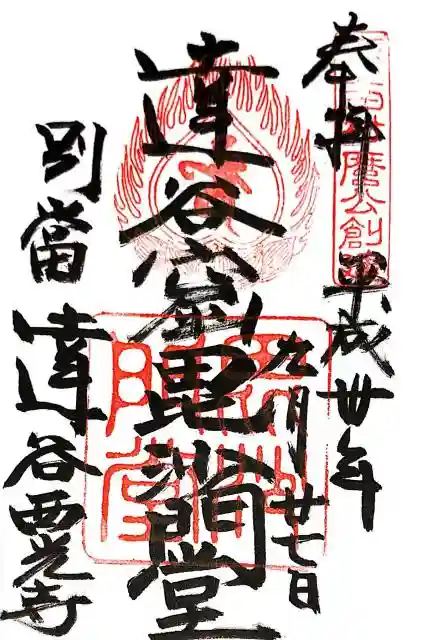 奉拝
平成丗年
九月廿七日
達谷窟毘沙門堂
別當
達谷西光寺